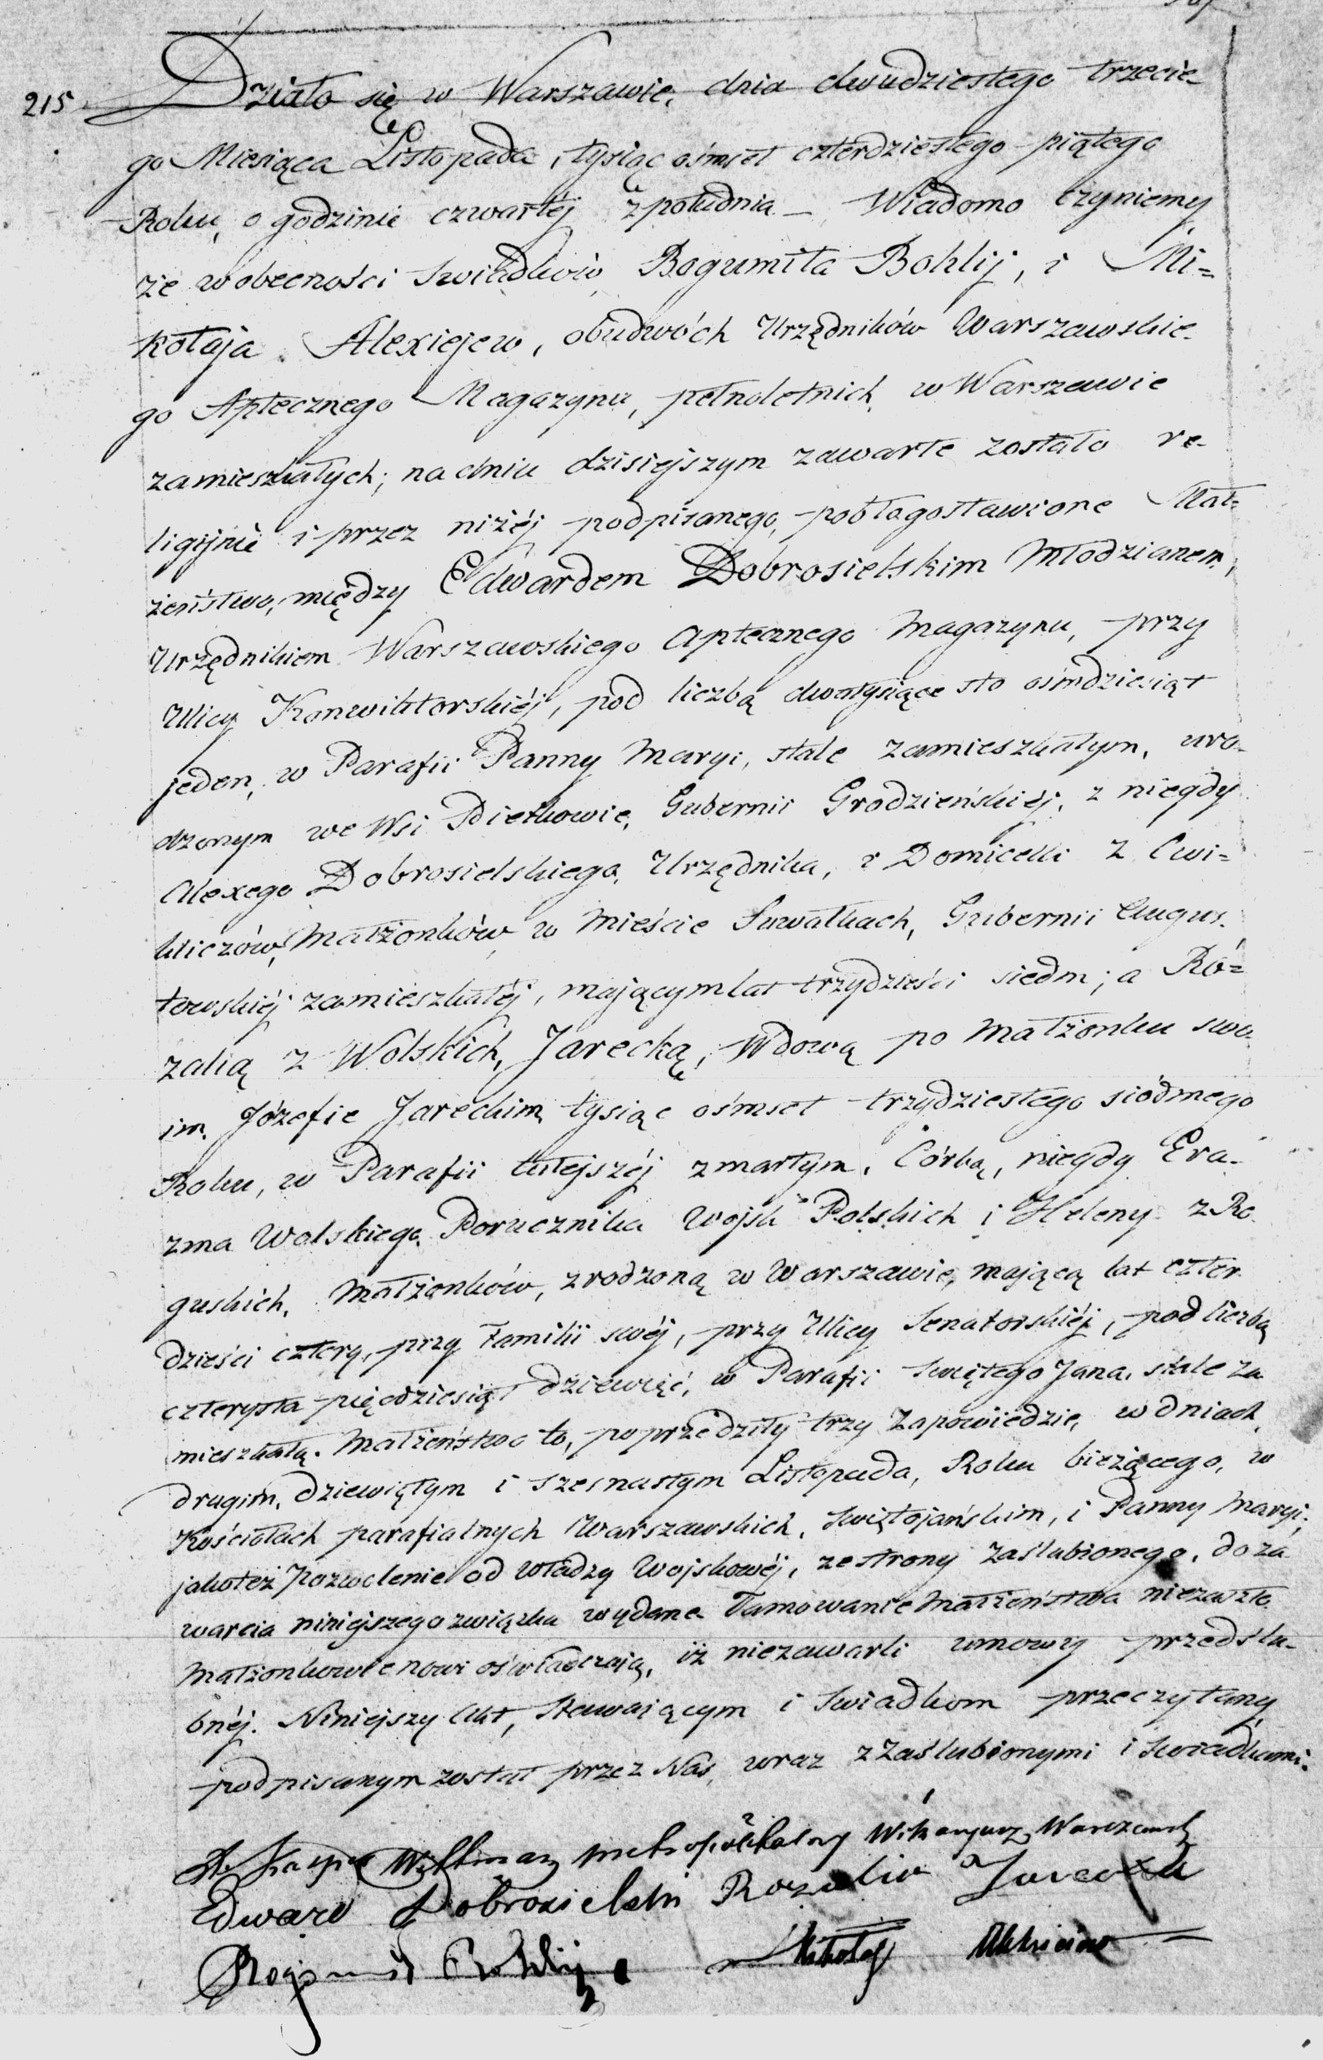 215. Działo się w Warszawie, dnia dwudziestego trzecie
go Miesiąca Listopada, tysiąc ośmset czterdziestego piątego
Roku, o godzinie czwartéj z południa – Wiadomo czyniemy
że w obecności Swiadków, Bogumiła Bohlij, i Mi=
kołaja Alexiejew, obudwóch Urzędników Warszawskie-
go Aptecznego Magazynu, pełnoletnich, w Warszawie
zamieszkałych; na dniu dzisiejszym zawarte zostało re-
ligijnie i przez niżéj podpisanego, pobłogosławione Mał=
żeństwo, między Edwardem Dobrosielskim Młodzianem,
Urzędnikiem Warszawskiego Aptecznego Magazynu, przy
Ulicy Konwiktorskiéj, pod liczbą dwatysiące sto ośmdziesiąt
jeden, w Parafii Panny Maryi, stale zamieszkałym, uro-
dzonym we Wsi Pietkowie, Gubernii Grodzieńskiéj, z niegdy
Alexego Dobrosielskiego, Urzędnika, i Domicelli z Cwi=
kliczów, Małżonków, w Mieście Suwałkach, Gubernii Augus-
towskiéj zamieszkałéj, mającym lat trzydzieści siedm; a Ró=
zalią z Wolskich, Jarecką, Wdową po Małżonku swo-
im, Józefie Jareckim, tysiąc ośmset trzydziestego siódmego
Roku, w Parafii tutejszéj zmarłym, Córką, niegdy Era-
zma Wolskiego, Porucznika Wojsk Polskich i Heleny z Ro-
guskich, Małżonków, zrodzoną w Warszawie, mającą lat czter-
dzieści cztery, przy Familii swéj, przy Ulicy Senatorskiéj, pod liczbą
czterysta pięćdziesiąt dziewięć, w Parafii Swiętego Jana, stale za
mieszkałą. Małżeństwo to, poprzedziły trzy Zapowiedzie, w dniach,
drugim, dziewiątym i szesnastym Listopada, Roku bieżącego, w
Kościołach parafialnych Warszawskich, Swiętojańskim, i Panny Maryi;
jakoteż Pozwolenie od władzy Wojskowéj, ze strony Zaślubionego, do za
warcia niniejszego związku wydane. Tamowanie Małżeństwa niezaszło.
Małżonkowie nowi oświadczają, iż niezawarli umowy przedślu-
bnéj. Niniejszy Akt, Stawaiącym i Swiadkom przeczytany
podpisanym został przez Nas, wraz z Zaślubionymi i Swiadkami.
Metropolitalny Wikaryusz Warszawski
Edward Dobrosielski Rozalia Jarecka
Bohlij Mikołaj